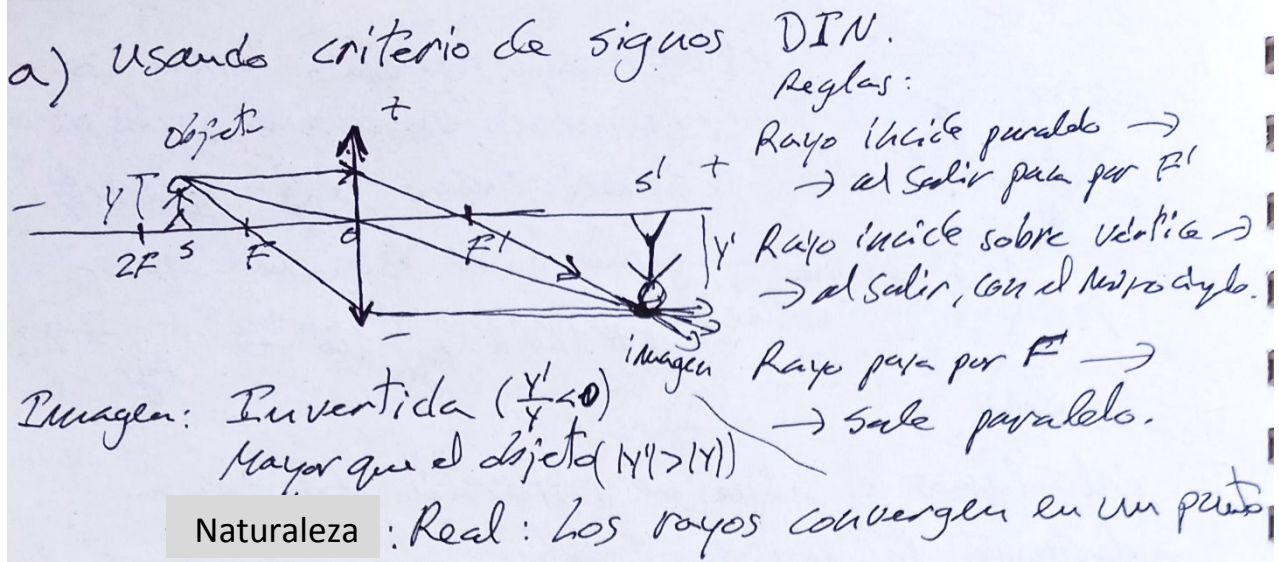 a) Usando criterio de signos DIN.
Reglas:
Rayo incide paralelo →
→ al salir pasa por F'
Rayo incide sobre vértice →
→ al salir, con el mismo ángulo.
Rayo pasa por F →
→ sale paralelo.
objeto
+
-
y
2F
s
F
O
F'
s'
+
y'
-
imagen
Imagen: Invertida (y'/y <0)
Mayor que el objeto (|y'|>|y|)
Naturaleza : Real : Los rayos convergen en un punto